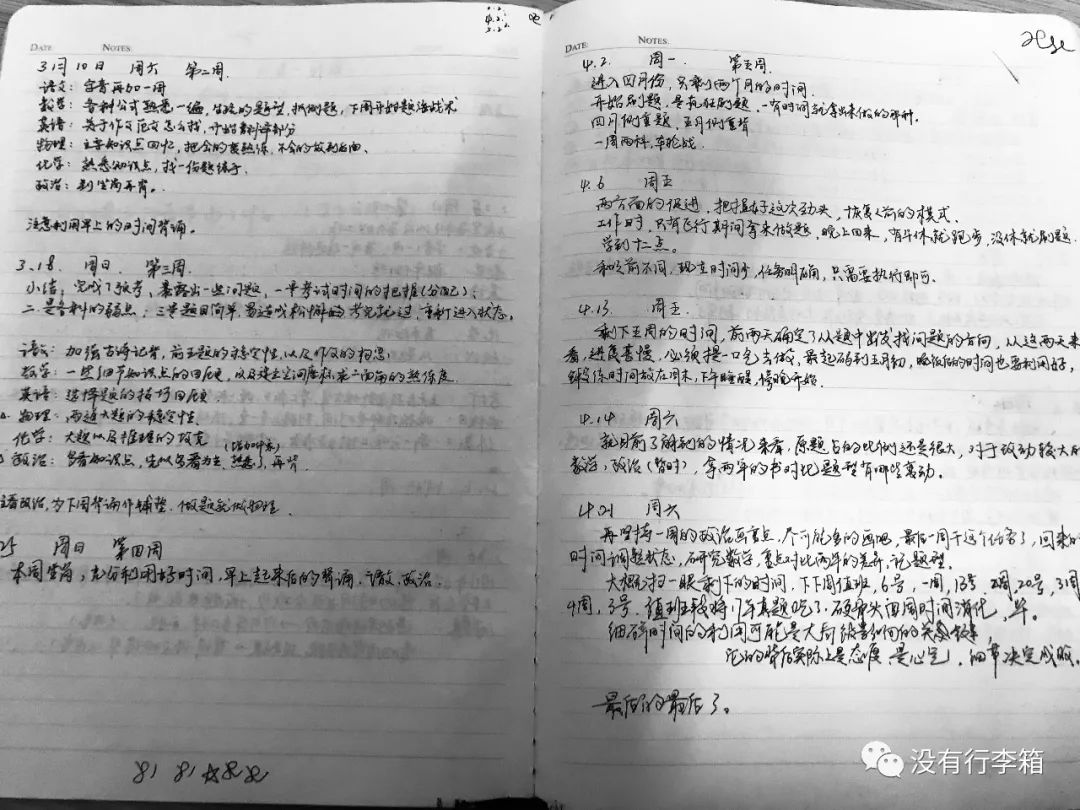 DATE NOTES
3月10日 周六 第二周.
语文: 字音再加一周
数学: 各科公式熟悉一遍, 找例题, 下周开始题海战术
英语: 关于作文范文怎么样, 开始翻译部分
物理: 主要知识点回忆, 把会的要熟练, 不会的放到后面.
化学: 熟悉知识点, 找一份题练手.
政治: 到生前再背.
注意利用早上的时间背诵.
3.18. 周日. 第三周.
小结: 完成了联考, 暴露出一些问题, 一是考试时间的把握(分配);
二是各科的弱点; 三是题目简单, 重新进入状态.
语文: 加强古诗记背, 前五题的稳定性, 以及作文的构思.
数学: 一些细节知识点的回顾, 以及建立空间坐标求二面角的熟练度.
英语: 选择题的技巧回顾
物理: 两道大题的稳定性.
化学: 大题以及推理的攻克
政治: 知识点, 先以多看为主, 熟悉了再背.
主看政治, 为下周背诵作铺垫. 做题就做物理
25 周日 第四周
本周, 充分利用好时间, 早上起来后的背诵, 语文, 政治.
81 81 ☆
DATE NOTES
4.2. 周一. 第五周.
进入四月份, 只剩两个月的时间.
开始刷题, 是疯狂刷题, 一有时间就拿出来做的那种.
四月侧重题, 五月侧重背
一周两科, 车轮战.
4.6 周五
两方面的促进, 把握好这次劲头, 恢复以前的模式.
工作日, 只有飞行期间拿来做题, 晚上回来, 有午休就跑步, 没休就刷题.
学到十二点.
和以前不同, 现在时间少, 任务明确, 只需要执行即可.
4.13. 周五.
剩下五周的时间, 前两天确定了从题中出发找问题的方向, 从这两天来
看, 进度甚慢, 必须提一口气去做, 晚饭后的时间也要利用好,
锻炼时间放在周末, 下午睡醒, 傍晚开始.
4.14 周六
就目前了解到的情况来看, 原题占的比例还是很大, 对于改动较大的
数学, 政治(暂时), 拿两年的书对比题型有哪些变动.
4.21 周六
再坚持一周的政治画重点, 尽可能多的画吧, 最后一周干这个任务了, 回来的
时间调整状态, 研究数学, 重点对比两年的差异, 记题型.
大概扫一眼剩下的时间, 下下周值班, 6号, 一周, 13号 2周, 20号, 3周
4周, 3号. 值班我将17年真题吃了, 四周时间消化, 毕.
细碎时间的利用可能是大后的关键,
它的背后实际上是态度, 是心气, 细节决定成败.
最后的最后了.
没有行李箱